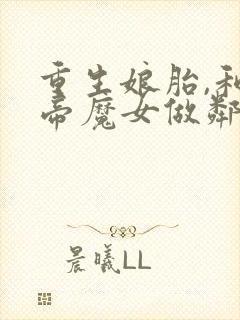 重生娘胎,和
帝魔女做鄰
晨曦LL